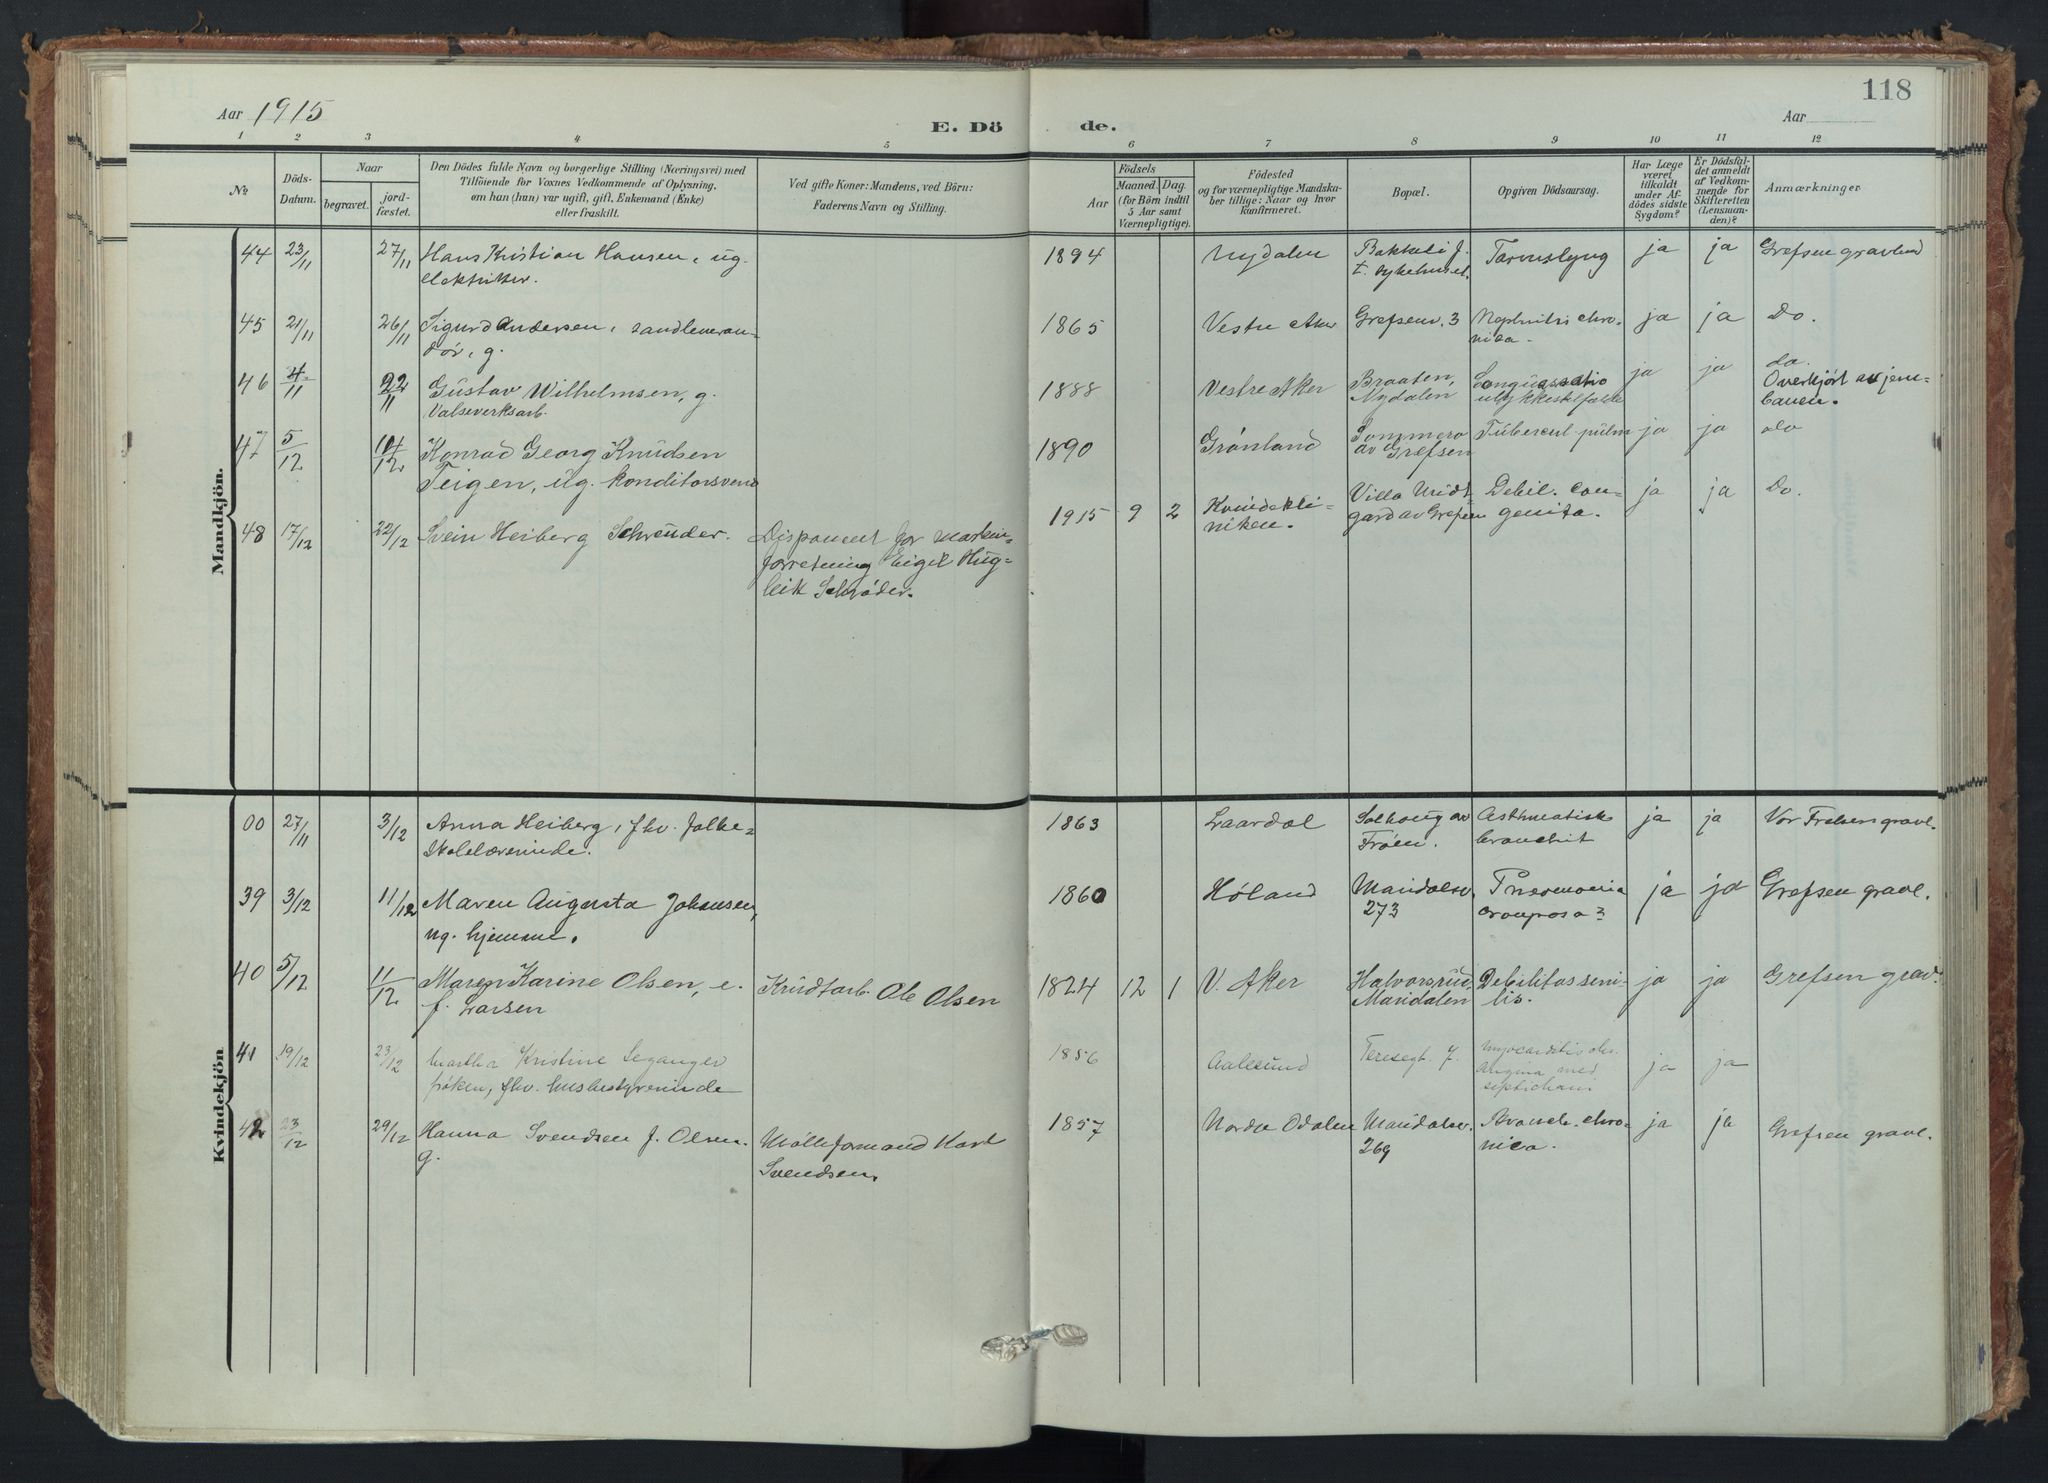 118
Aar 1915
E. Dö de.
Aar
1 2 3 4 5 6 7 8 9 10 11 12
No.
Döds-Datum.
Naar
begravet.
jord-fæstet.
Den Dödes fulde Navn og borgerlige Stilling (Næringsvei) med
Tilföiende for Voxnes Vedkommende af Oplysning,
om han (hun) var ugift, gift, Enkemand (Enke)
eller fraskilt.
Ved gifte Koner: Mandens, ved Börn:
Faderens Navn og Stilling.
Födsels
Aar
Maaned. Dag.
(for Börn indtil
5 Aar samt
Værnepligtige).
Födested
og for værnepligtige Mandska-
ber tillige: Naar og hvor
konfirmeret.
Bopæl.
Opgiven Dödsaarsag.
Har Læge
været
tilkaldt
under Af-
dödes sidste
Sygdom?
Er Dödsfal-
det anmeldt
af Vedkom-
mende for
Skifteretten
(Lensman-
den)?
Anmærkninger
Mandkjön.
44 23/11 27/11 Hans Kristian Hansen, ug. 1894 Nydalen Bakkeli f. Tarmslyng ja ja Grefsen gravlund
elektriker. t. sykehuset.
45 21/11 26/11 Sigurd Andersen, sandleveran- 1865 Vestre Aker Grefsenv. 3 Nephritis chro- ja ja Do.
dör, g. nica.
46 4/11 22/11 Gustav Wilhelmsen, g. 1888 Vestre Aker Braaten, Conquassatio ja ja do.
Valseverksarb. Nydalen ulykkestilfælde Overkjört av jern-
banen.
47 5/12 10/12 Konrad Georg Knudsen 1890 Grönland Sommero Tubercul pulm ja ja do
Teigen, ug. konditorsvend av Grefsen
48 17/12 22/12 Svein Heiberg Schrøder. Disponent for maskin- 1915 9 2 Kvindekli- Villa Midt- Debil. con- ja ja Do.
forretning Eigil Hug- niken. gard av Grefsen genita.
leik Schrøder.
Kvindekjön
00 27/11 3/12 Anna Heiberg, fhv. folke- 1863 Laardal Solhaug av Asthmatisk ja ja Vor Frelsers gravl.
skolelærerinde. Frøen. bronchit
39 3/12 11/12 Maren Augusta Johansen, 1860 Høland Maridalsv. Pneumonia ja ja Grefsen gravl.
ug. hjemme. 273 crouposa
40 5/12 11/12 Maren Karine Olsen, e. Krudtarb. Ole Olsen 1824 12 1 V. Aker Halvorsrud Debilitas seni- ja ja Grefsen grav.
f. Larsen Maridalen lis.
41 19/12 23/12 Martha Kristine Leganger 1856 Aalesund Teresegt. 7. Myocarditis chr. ja ja
frøken, fhv. husbestyrerinde Angina med
septichæmi
42 23/12 29/12 Hanna Svendsen f. Olsen. Mölleformand Karl 1857 Nordre Odalen Maridalsv. Bronch. chro- ja ja Grefsen gravl.
g. Svendsen. 269 nica.